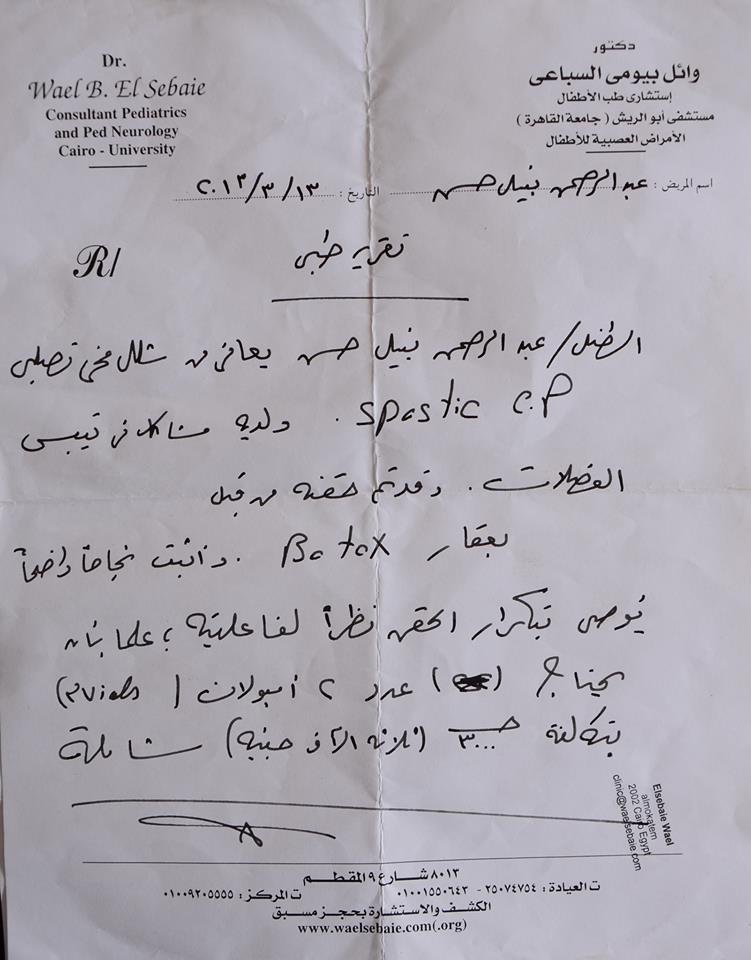 Dr.
Wael B. El Sebaie
Consultant Pediatrics
and Ped Neurology
Cairo - University
دكتور
وائل بيومى السباعى
إستشارى طب الأطفال
مستشفى أبو الريش ( جامعة القاهرة )
الأمراض العصبية للأطفال
اسم المريض : عبد الرحمن نبيل حسن التاريخ : ٢٠١٣/٣/١٣
R/
تقرير طبى
الطفل / عبد الرحمن نبيل حسن يعانى من شلل مخى تصلبى
Spastic C.P . ولديه مشاكل فى تيبس
العضلات . وقد تم حقنه من قبل
بعقار Botox . وأثبت نجاحاً واضحاً
نوصى بتكرار الحقن نظراً لفاعليته ، علما بأنه
يحتاج ( ) عدد ٢ أمبولات ( Vials)
بتكلفة ٣٠٠٠ (ثلاثة الآف جنيه) شاملة
Elsebaie Wael
almokatem
2002 Cairo Egypt
clinic@waelsebaie.com
٨٠١٣ شارع ٩ المقطم
ت العيادة : ٢٥٠٧٤٧٥٤ - ٠١٠٠١٥٥٠٦٤٣ ت المركز : ٠١٠٠٩٢٠٥٥٥٥
الكشف والاستشارة بحجز مسبق
www.waelsebaie.com(.org)